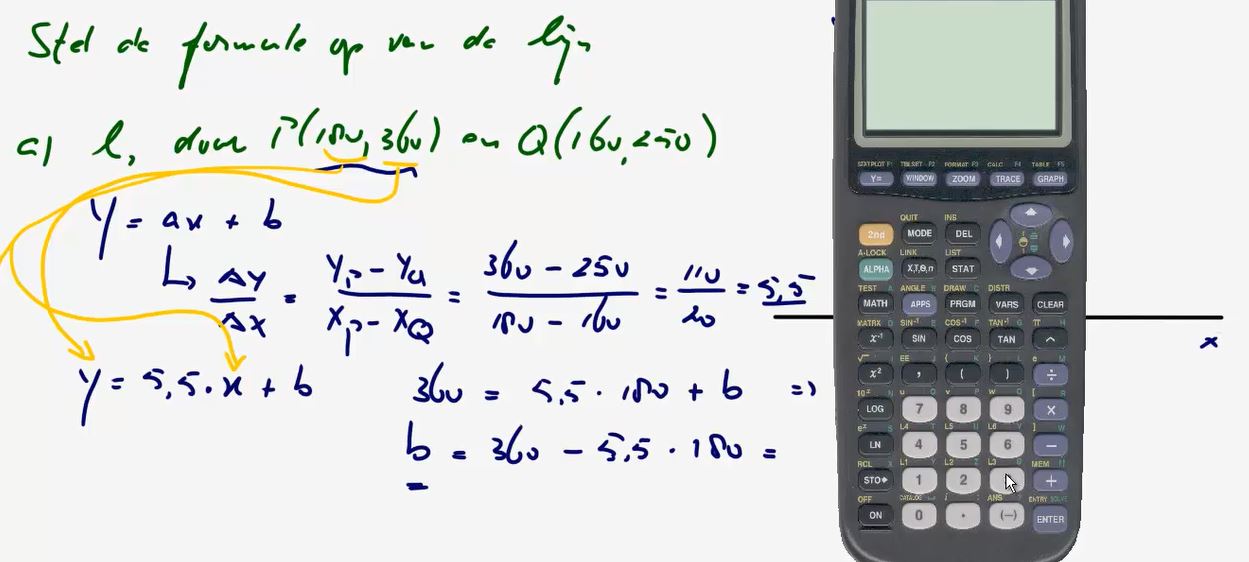 Stel de formule op van de lijn
a) l, door P(180, 360) en Q(160, 250)
y = ax + b
↳ Δy/Δx = (yP - yQ)/(xP - xQ) = (360 - 250)/(180 - 160) = 110/20 = 5,5
y = 5,5 · x + b
360 = 5,5 · 180 + b =>
b = 360 - 5,5 · 180 =
x
STATPLOT F1 TBLSET F2 FORMAT F3 CALC F4 TABLE F5
Y= WINDOW ZOOM TRACE GRAPH
QUIT INS
2nd MODE DEL
A-LOCK LINK LIST
ALPHA X,T,θ,n STAT
TEST A ANGLE B DRAW C DISTR
MATH APPS PRGM VARS CLEAR
MATRX D SIN⁻¹ E COS⁻¹ F TAN⁻¹ G π H
x⁻¹ SIN COS TAN ^
√ I EE J { K } L e M
x² , ( ) ÷
10ˣ N u O v P w Q [ R
LOG 7 8 9 ×
eˣ S L4 T L5 U L6 V ] W
LN 4 5 6 −
RCL X L1 Y L2 Z L3 θ MEM "
STO▸ 1 2 +
OFF CATALOG i : ANS ENTRY SOLVE
ON 0 . (−) ENTER